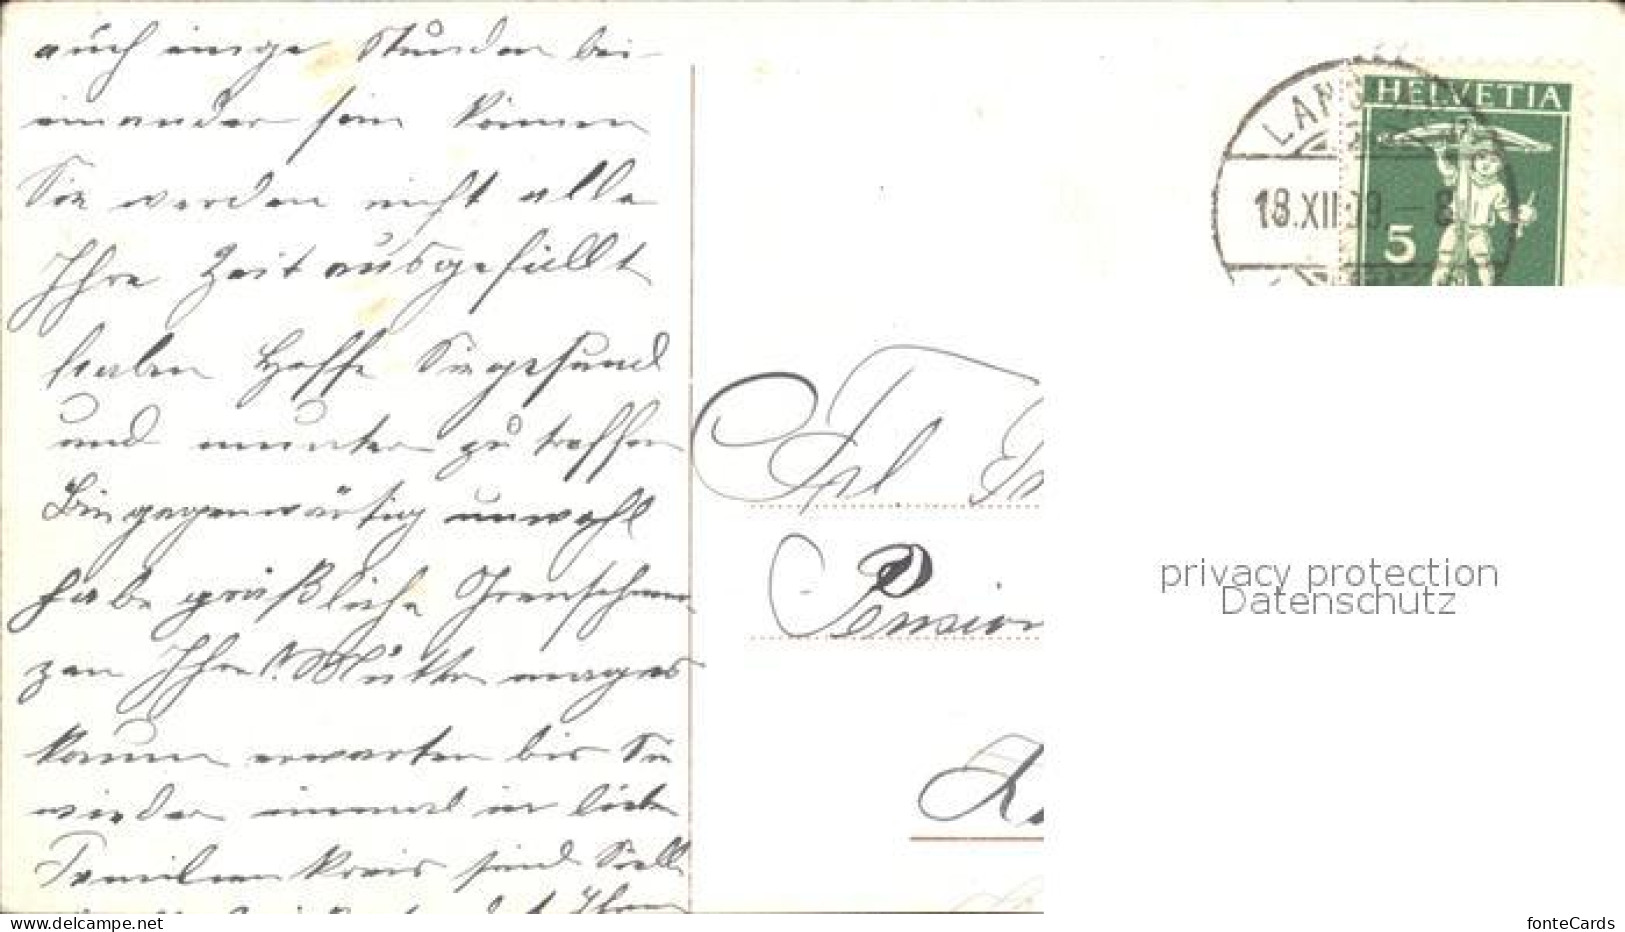 auch einige Stunden bei
einander sein können
Sie werden nicht alle
Ihre Zeit ausgefüllt
haben Hoffe Sie gesund
und munter zu treffen
Bin gegenwärtig unwohl
habe gräßliche Ohrenschmer
zen Ihre Mutter mag es
kaum erwarten bis Sie
wieder einmal im lieben
Familienkreis sind
Ihnen
HELVETIA
5
18.XII.09.-8
Frl
Pension
privacy protection
Datenschutz
www.delcampe.net
fonteCards